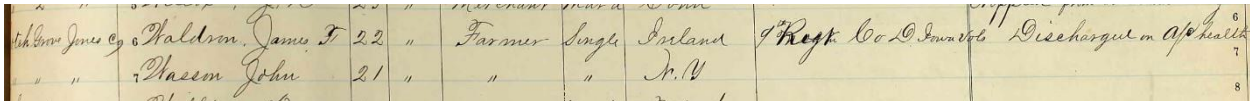 Merchant
6
Grove Jones Co 6 Waldron, James T 22 " Farmer Single Ireland 9th Regt Co D Iowa Vols Discharged on a/c health
7
" " 7 Wasson John 21 " " " N.Y
8